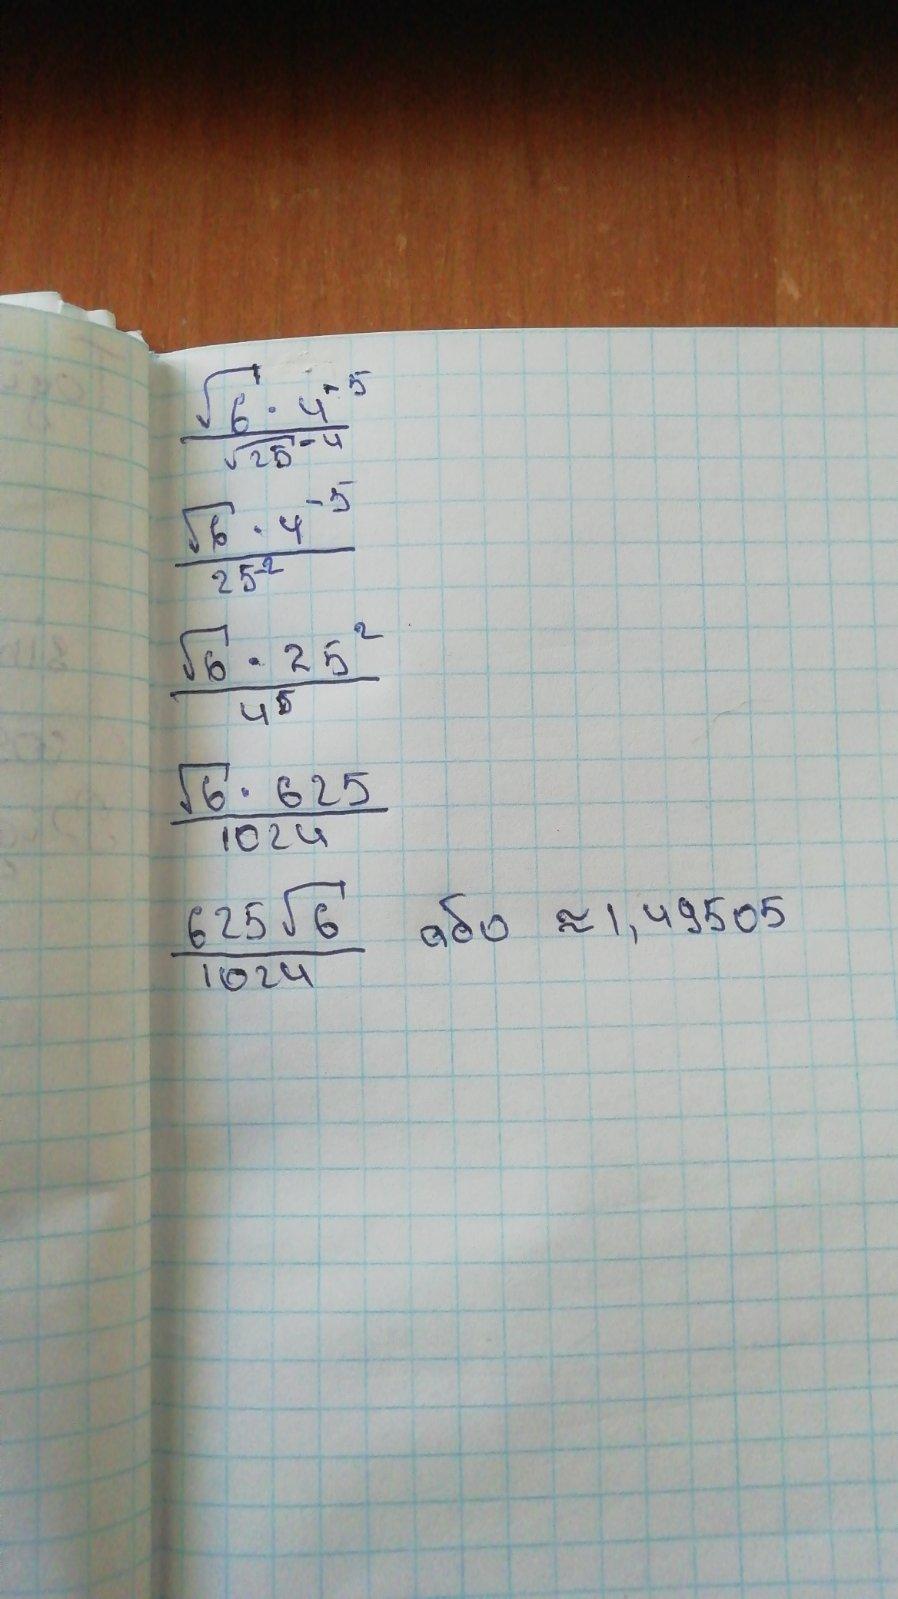 √6 · 4⁻⁵
√25⁻⁴
√6 · 4⁻⁵
25⁻²
√6 · 25²
4⁵
√6 · 625
1024
625√6 або ≈1,49505
1024